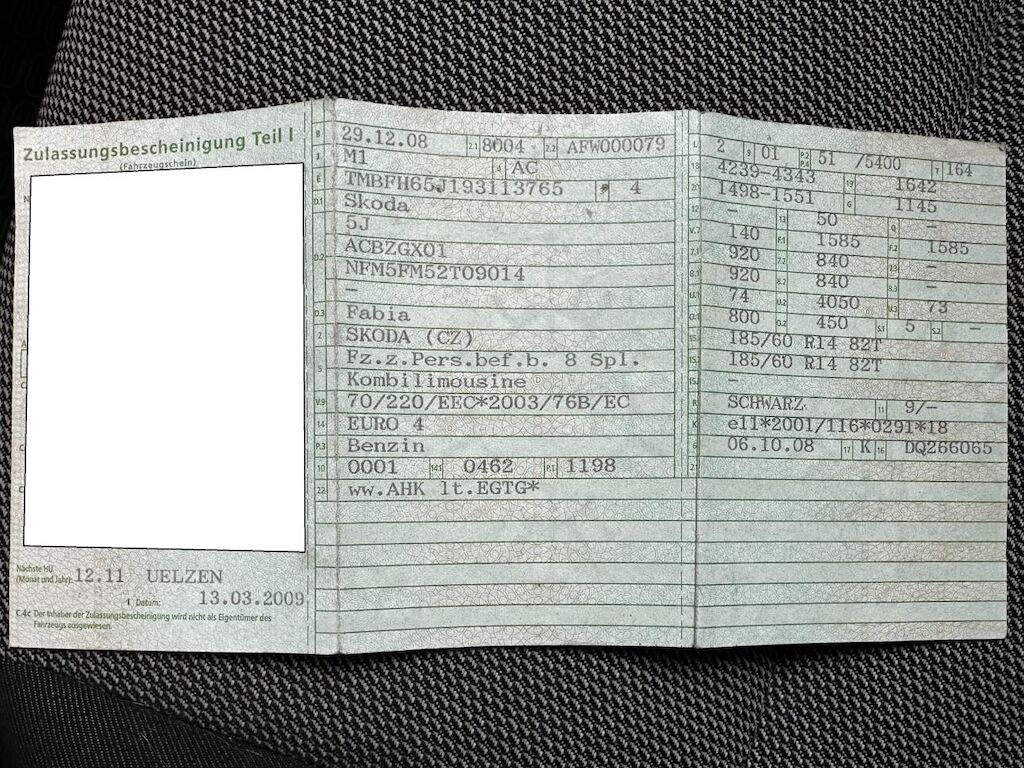 Zulassungsbescheinigung Teil I
(Fahrzeugschein)
Nächste HU
(Monat und Jahr): 12.11 UELZEN
I Datum: 13.03.2009
C.4c Der Inhaber der Zulassungsbescheinigung wird nicht als Eigentümer des
Fahrzeugs ausgewiesen.
B 29.12.08 2.1 8004 2.2 AFW000079
J M1 4 AC
E TMBFH65J193113765 3 4
D.1 Skoda
5J
D.2 ACBZGX01
NFM5FM52T09014
–
D.3 Fabia
2 SKODA (CZ)
5 Fz.z.Pers.bef.b. 8 Spl.
Kombilimousine
V.9 70/220/EEC*2003/76B/EC
14 EURO 4
P.3 Benzin
10 0001 14.1 0462 P.1 1198
22 ww.AHK lt.EGTG*
L 2 9 01 P.2 P.4 51 /5400 T 164
18 4239-4343 19 1642
20 1498-1551 G 1145
12 – 13 50 Q –
V.7 140 F.1 1585 F.2 1585
7.1 920 7.2 840 7.3 –
8.1 920 8.2 840 8.3 –
U.1 74 U.2 4050 U.3 73
O.1 800 O.2 450 S.1 5 S.2 –
15.1 185/60 R14 82T
15.2 185/60 R14 82T
15.3 –
R SCHWARZ 11 9/–
K e11*2001/116*0291*18
6 06.10.08 17 K 16 DQ266065
21